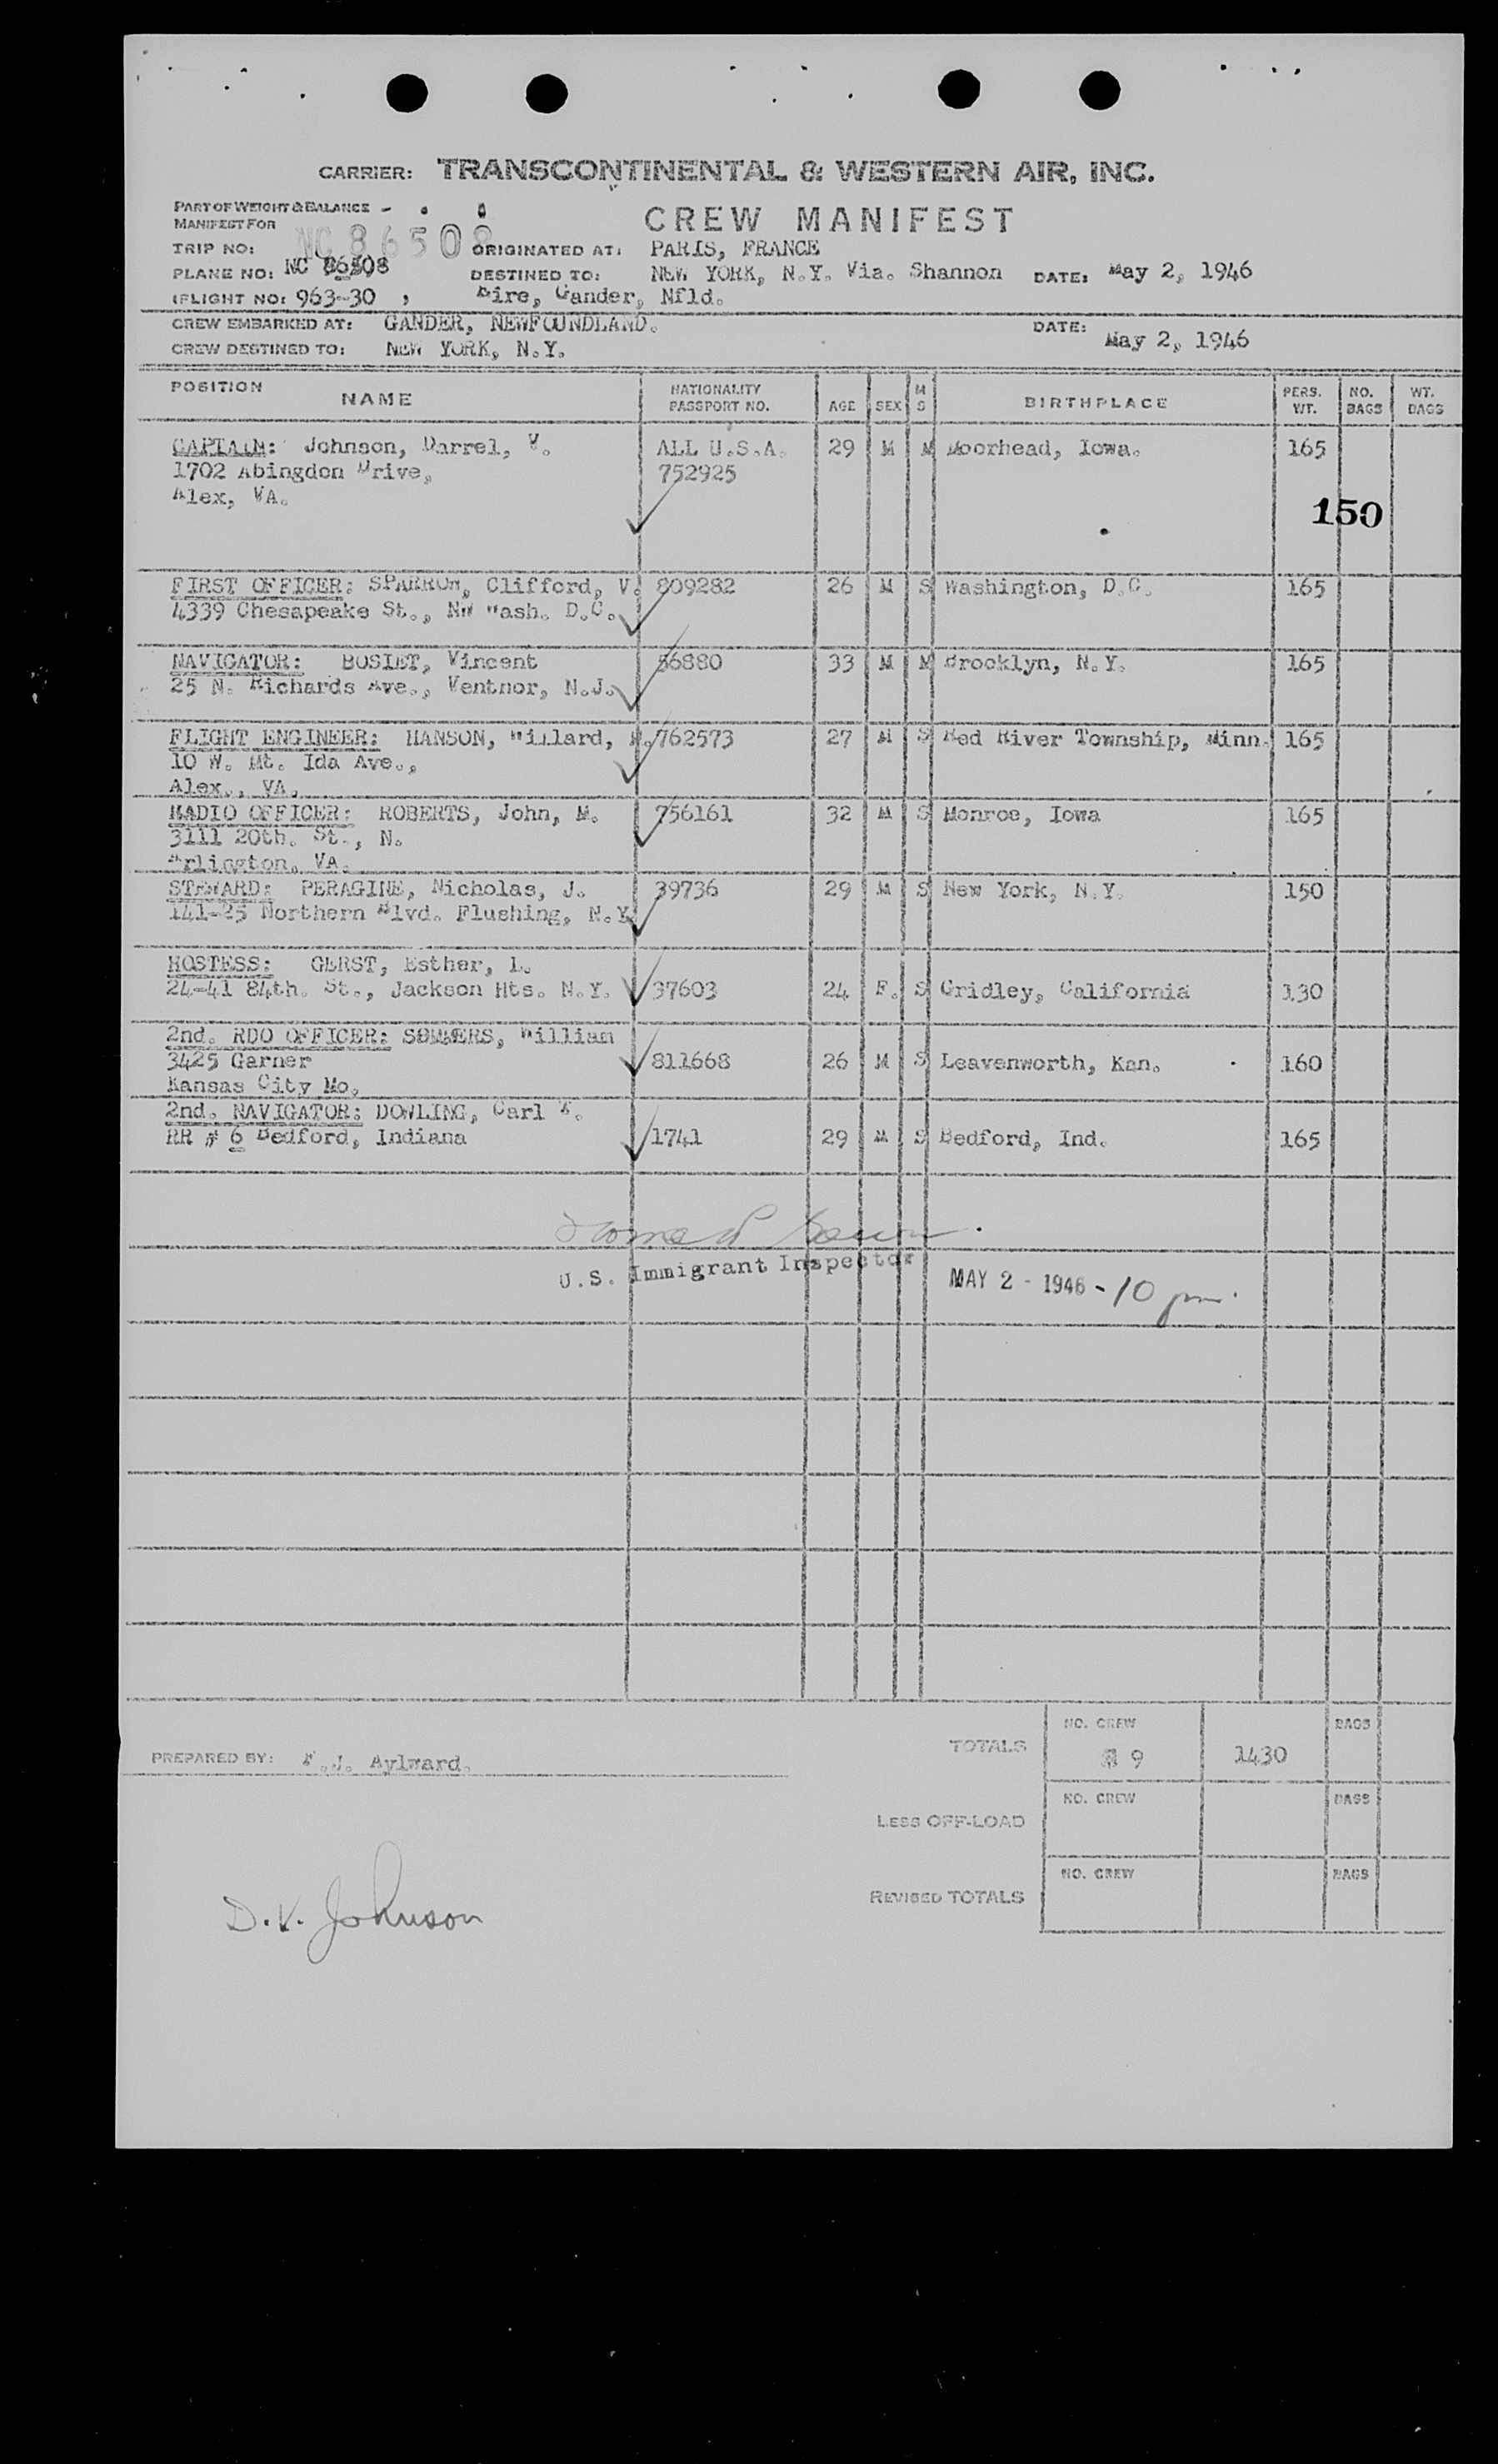 CARRIER: TRANSCONTINENTAL & WESTERN AIR, INC.
PART OF WEIGHT & BALANCE
MANIFEST FOR
CREW MANIFEST
NC 86508
TRIP NO: ORIGINATED AT: PARIS, FRANCE
PLANE NO: NC 86508 DESTINED TO: NEW YORK, N.Y. Via. Shannon DATE: May 2, 1946
(FLIGHT NO: 963-30 , Eire, Gander, Nfld.
CREW EMBARKED AT: GANDER, NEWFOUNDLAND. DATE:
CREW DESTINED TO: NEW YORK, N.Y. May 2, 1946
POSITION NAME NATIONALITY PASSPORT NO. AGE SEX M S BIRTHPLACE PERS. WT. NO. BAGS WT. BAGS
CAPTAIN: Johnson, Darrel, V. ALL U.S.A. 29 M M Moorhead, Iowa. 165
1702 Abingdon Drive, 752925
Alex, VA.
150
FIRST OFFICER: SPARROW, Clifford, V. 809282 26 M S Washington, D.C. 165
4339 Chesapeake St., NW Wash. D.C.
NAVIGATOR: BOSIET, Vincent 56880 33 M M Brooklyn, N.Y. 165
25 N. Richards Ave., Ventnor, N.J.
FLIGHT ENGINEER: HANSON, Willard, 762573 27 M S Red River Township, Minn. 165
10 W. Mt. Ida Ave.,
Alex., VA.
RADIO OFFICER: ROBERTS, John, M. 756161 32 M S Monroe, Iowa 165
3111 20th. St., N.
Arlington, VA.
STEWARD: PERAGINE, Nicholas, J. 39736 29 M S New York, N.Y. 150
141-25 Northern Blvd. Flushing, N.Y.
HOSTESS: GERST, Esther, L.
24-41 84th. St., Jackson Hts. N.Y. 37603 24 F. S Gridley, California 130
2nd. RDO OFFICER: SOMMERS, William
3425 Garner 811668 26 M S Leavenworth, Kan. 160
Kansas City Mo.
2nd. NAVIGATOR: DOWLING, Carl
RR # 6 Bedford, Indiana 1741 29 M S Bedford, Ind. 165
U.S. Immigrant Inspector MAY 2 - 1946 - 10 pm.
NO. CREW BAGS
PREPARED BY: F.J. Aylward. TOTALS 9 1430
NO. CREW BAGS
LESS OFF-LOAD
NO. CREW BAGS
REVISED TOTALS
D.V. Johnson